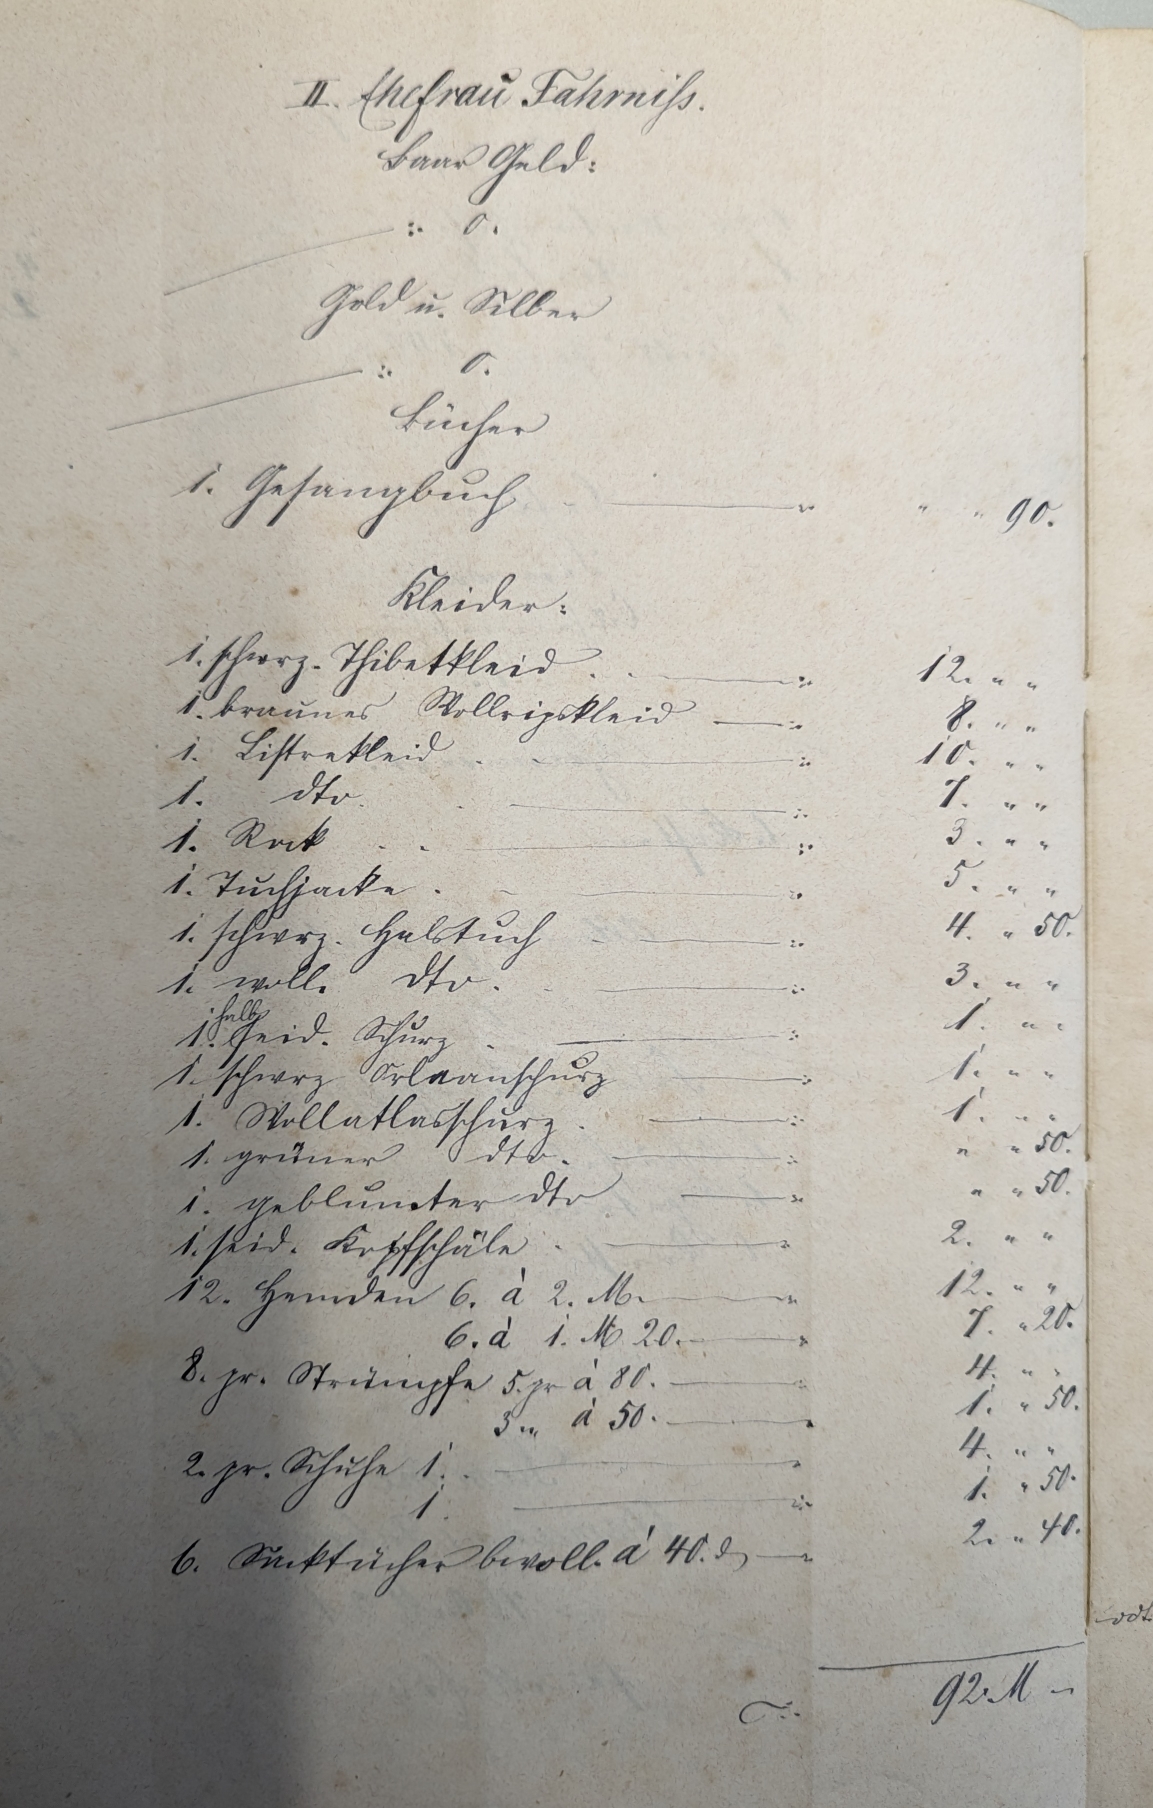 II. Ehefrau Fahrniss.
Baar Geld:
: 0.
Gold u. Silber
: 0.
Bücher
1. Gesangbuch — " " 90.
Kleider:
1. schwrz. Thibetkleid . . — 12. " "
1. braunes Wollripskleid — 8. " "
1. Listrekleid . . — 10. " "
1. dto. . — 7. " "
1. Rock . . — 3. " "
1. Tuchjacke . — 5. " "
1. schwrz. Halstuch — 4. " 50.
1. woll. dto. — 3. " "
1. halbseid. Schurz . — 1. " "
1. schwrz Orleanschurz — 1. " "
1. Wollatlasschurz . — 1. " "
1. grüner dto. — " " 50.
1. geblumter dto — " " 50.
1. seid. Kopfschäle . — 2. " "
12. Hemden 6. à 2. M. — 12. " "
6. à 1. M 20. — 7. " 20.
8. pr. Strümpfe 5. pr à 80. — 4. " "
3 " à 50. — 1. " 50.
2. pr. Schuhe 1. . — 4. " "
1. — 1. " 50.
6. Sacktücher bwoll. à 40. ₰ — 2. " 40.
92. M —